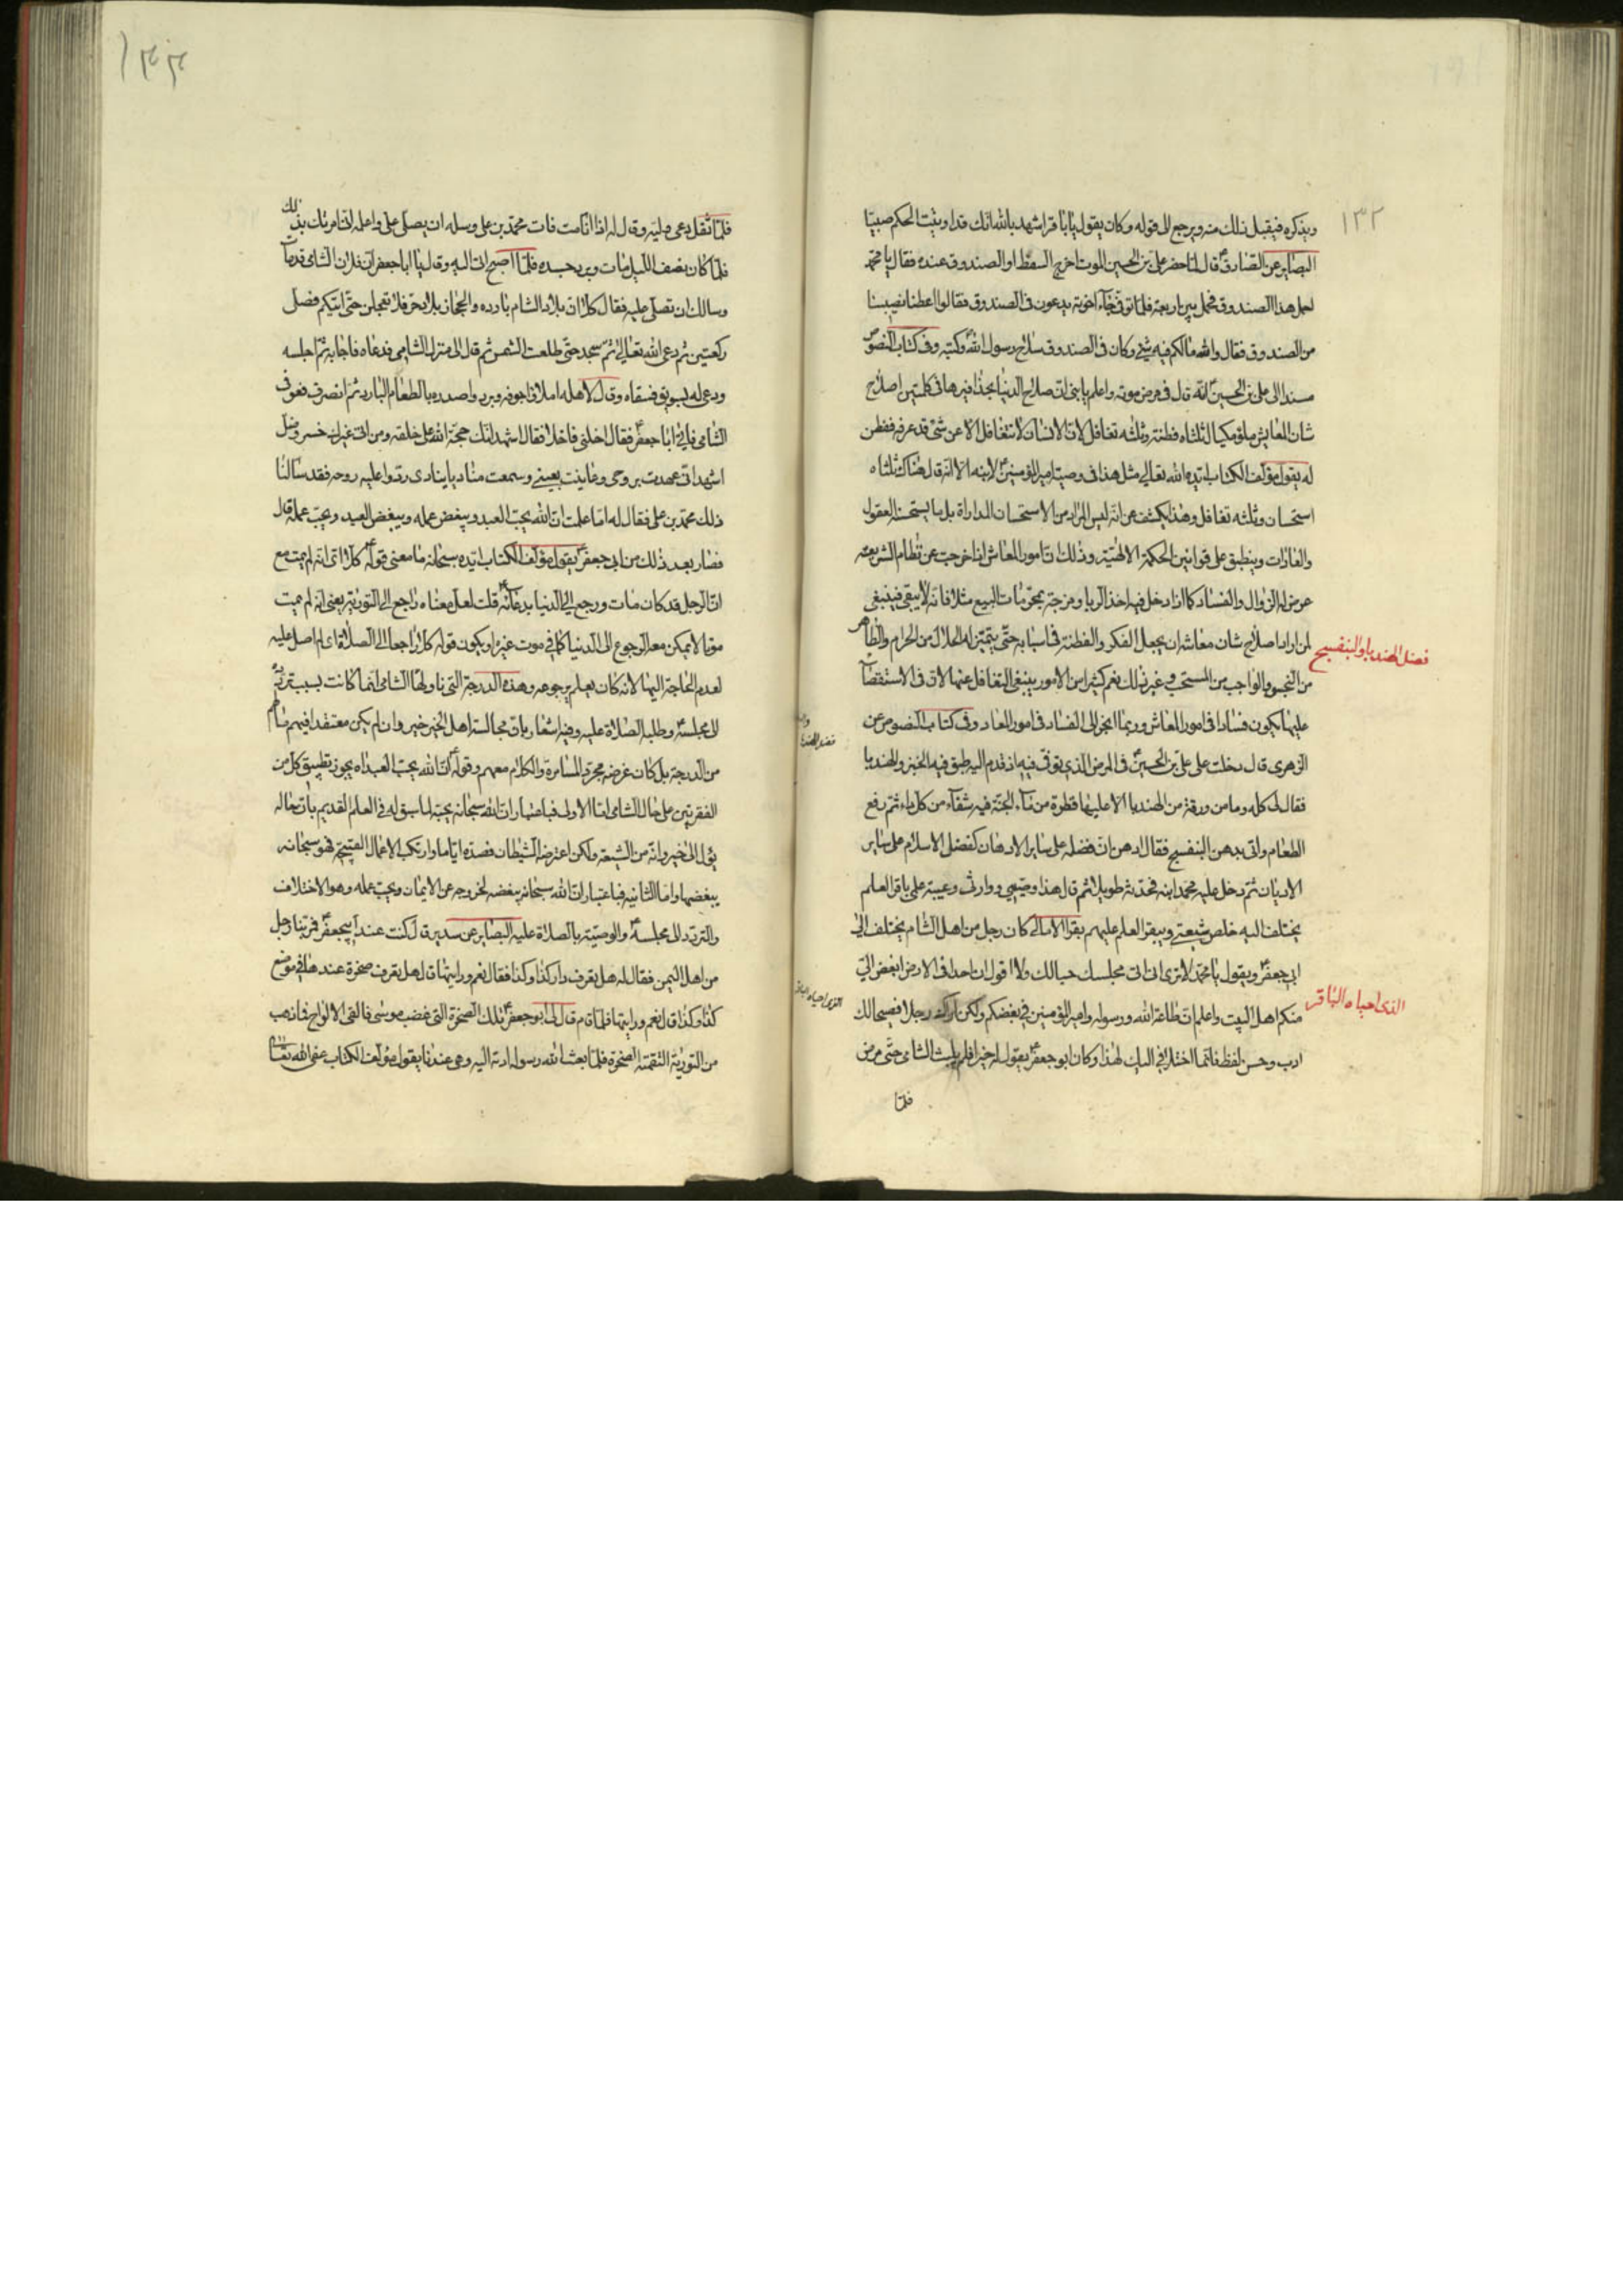 ١٣٢
ويذكره فيقبل ذلك منه ويرجع الى قوله وكان يقول يا باقر اشهد بالله انك قد اوتيت الحكم صبيا
البصاير عن الصادق ع قال لما حضر على بن الحسين الموت اخرج السفط او الصندوق عنده فقال يا محمد
احمل هذا الصندوق فحمل بين اربعة فلما توفى جآء اخوته يدعون فى الصندوق فقالوا اعطنا نصيبنا
من الصندوق فقال والله ما لكم فيه شئ وكان فى الصندوق سلاح رسول الله وكتبه وفى كتاب النصوص
مسندا الى على بن الحسين ع انه قال فى مرض موته واعلم يا بنى ان صلاح الدنيا بحذافيرها فى كلمتين اصلاح
شان المعايش ملؤ مكيال ثلثاه فطنة وثلثه تغافل لان الانسان لا يتغافل الا عن شئ قد عرفه ففطن
له يقول مؤلف الكتاب ايده الله تعالى مثل هذا فى وصية امير المؤمنين ع لابنه الا انه قال هناك ثلثاه
استحسان وثلثه تغافل وهذا يكشف عن انه ليس المراد من الاستحسان المداراة بل ما يستحسنه العقول
والعادات وينطبق على قوانين الحكمة الالهية وذلك ان امور المعاش اذا خرجت عن نظام الشريعة
عرض لها الزوال والفساد كما اذا دخل فيها اخذ الربا ومزجته بمحرمات البيع مثلا فانه لا يبقى فينبغى
لمن اراد اصلاح شان معاشه ان يجعل الفكر والفطنة فى اسبابه حتى يتميز له الحلال من الحرام والطاهر
فضل الهندبا والبنفسج
من النجس والواجب من المستحب وغير ذلك نعم كثير من الامور ينبغى التغافل عنها لان فى الاستقصآء
عليها يكون فسادا فى امور المعاش وربما انجر الى الفساد فى امور المعاد وفى كتاب النصوص عن
الزهرى قال دخلت على على بن الحسين ع فى المرض الذى توفى فيه اذ قدم اليه طبق فيه الخبز والهندبا
فقال لى كله وما من ورقة من الهندبا الا عليها قطرة من مآء الجنة فيه شفآء من كل داء ثم رفع
الطعام واتى بدهن البنفسج فقال ادهن ان فضله على ساير الادهان كفضل الاسلام على ساير
الاديان ثم دخل عليه محمد ابنه فحدثه طويلا ثم قال هذا وصيى ووارثى وعيبة علمى باقر العلم
يختلف اليه خلص شيعتى ويبقر العلم عليهم بقرا الامالى كان رجل من اهل الشام يختلف الى
ابى جعفر ع ويقول يا محمد الا ترى انى اتى مجلسك حبا لك ولا اقول ان احدا فى الارض ابغض الى
الذى احياه الباقر
منكم اهل البيت واعلم ان طاعة الله ورسوله وامير المؤمنين فى بغضكم ولكن اراك رجلا فصيحا لك
ادب وحسن لفظ فانما اختلافى اليك لهذا وكان ابو جعفر ع يقول له خيرا فلم يلبث الشامى حتى مرض
فلما
١٣٣
فلما ثقل دعى وليه وقال له اذا انا مت فات محمد بن على وسله ان يصلى على واعلمه انى امرتك بذلك
فلما كان نصف الليل مات وبرد جسده فلما اصبح اتى اليه وقال يا ابا جعفر ان فلان الشامى قد مات
وسالك ان تصلى عليه فقال كلا ان بلاد الشام بارده والحجاز بلاد حر فلا تعجلن حتى اتيكم فصلى
ركعتين ثم دعى الله تعالى ثم سجد حتى طلعت الشمس ثم قال الى منزل الشامى فدعاه فاجابه ثم اجلسه
ودعى له بسويق فسقاه وقال لاهله املاوا جوفه وبردوا صدره بالطعام البارد ثم انصرف فعوفى
الشامى فاتى ابا جعفر ع فقال اخلنى فاخلا فقال اشهد انك حجة الله على خلقه ومن اتى غيرك خسر وضل
اشهد انى عهدت بروحى وعاينت بعينى وسمعت مناديا ينادى ردوا عليه روحه فقد سالنا
ذلك محمد بن على فقال له اما علمت ان الله يحب العبد ويبغض عمله ويبغض العبد ويحب عمله قال
فصار بعد ذلك من ابى جعفر ع يقول مؤلف الكتاب ايده سبحانه ما معنى قوله ع كلا اى انه لم يمت مع
ان الرجل قد كان مات ورجع الى الدنيا بدعآئه ع قلت لعل معناه راجع الى التورية يعنى انه لم يمت
موتا لا يمكن معه الرجوع الى الدنيا كما فى موت غيره او يكون قوله كلا راجعا الى الصلاة اى لم اصل عليه
لعدم الحاجة اليها لانه كان يعلم برجوعه وهذه الدرجة التى ناولها الشامى انما كانت بسبب تردده
الى مجلسه ع وطلبه الصلاة عليه وفيه اشعار بان مجالسة اهل الخير خير وان لم يكن معتقدا فيهم ما لهم
من الدرجة بل كان غرضه مجرد المسامرة والكلام معهم وقوله ع ان الله يحب العبد اه يجوز تطبيق كل من
الفقرتين على حال الشامى اما الاولى فباعتبار ان الله سبحانه يحبه لما سبق له فى العلم القديم بان حاله
يؤل الى خير وانه من الشيعة ولكن اعترضه الشيطان فصده اياما وارتكب الاعمال القبيحة فهو سبحانه
يبغضها واما الثانية فباعتبار ان الله سبحانه يبغضه لخروجه عن الايمان ويحب عمله وهو الاختلاف
والتردد الى مجلسه ع والوصية بالصلاة عليه البصاير عن سدير قال كنت عند ابى جعفر ع فمر بنا رجل
من اهل اليمن فقال له هل تعرف دار كذا وكذا فقال نعم ورايتها قال هل تعرف صخرة عندها فى موضع
كذا وكذا قال نعم ورايتها فلما قام قال لى ابو جعفر ع تلك الصخرة التى غضب موسى فالقى الالواح فما ذهب
من التورية التقمته الصخرة فلما بعث الله رسوله ادته اليه وهى عندنا يقول مؤلف الكتاب عفى الله تعالى